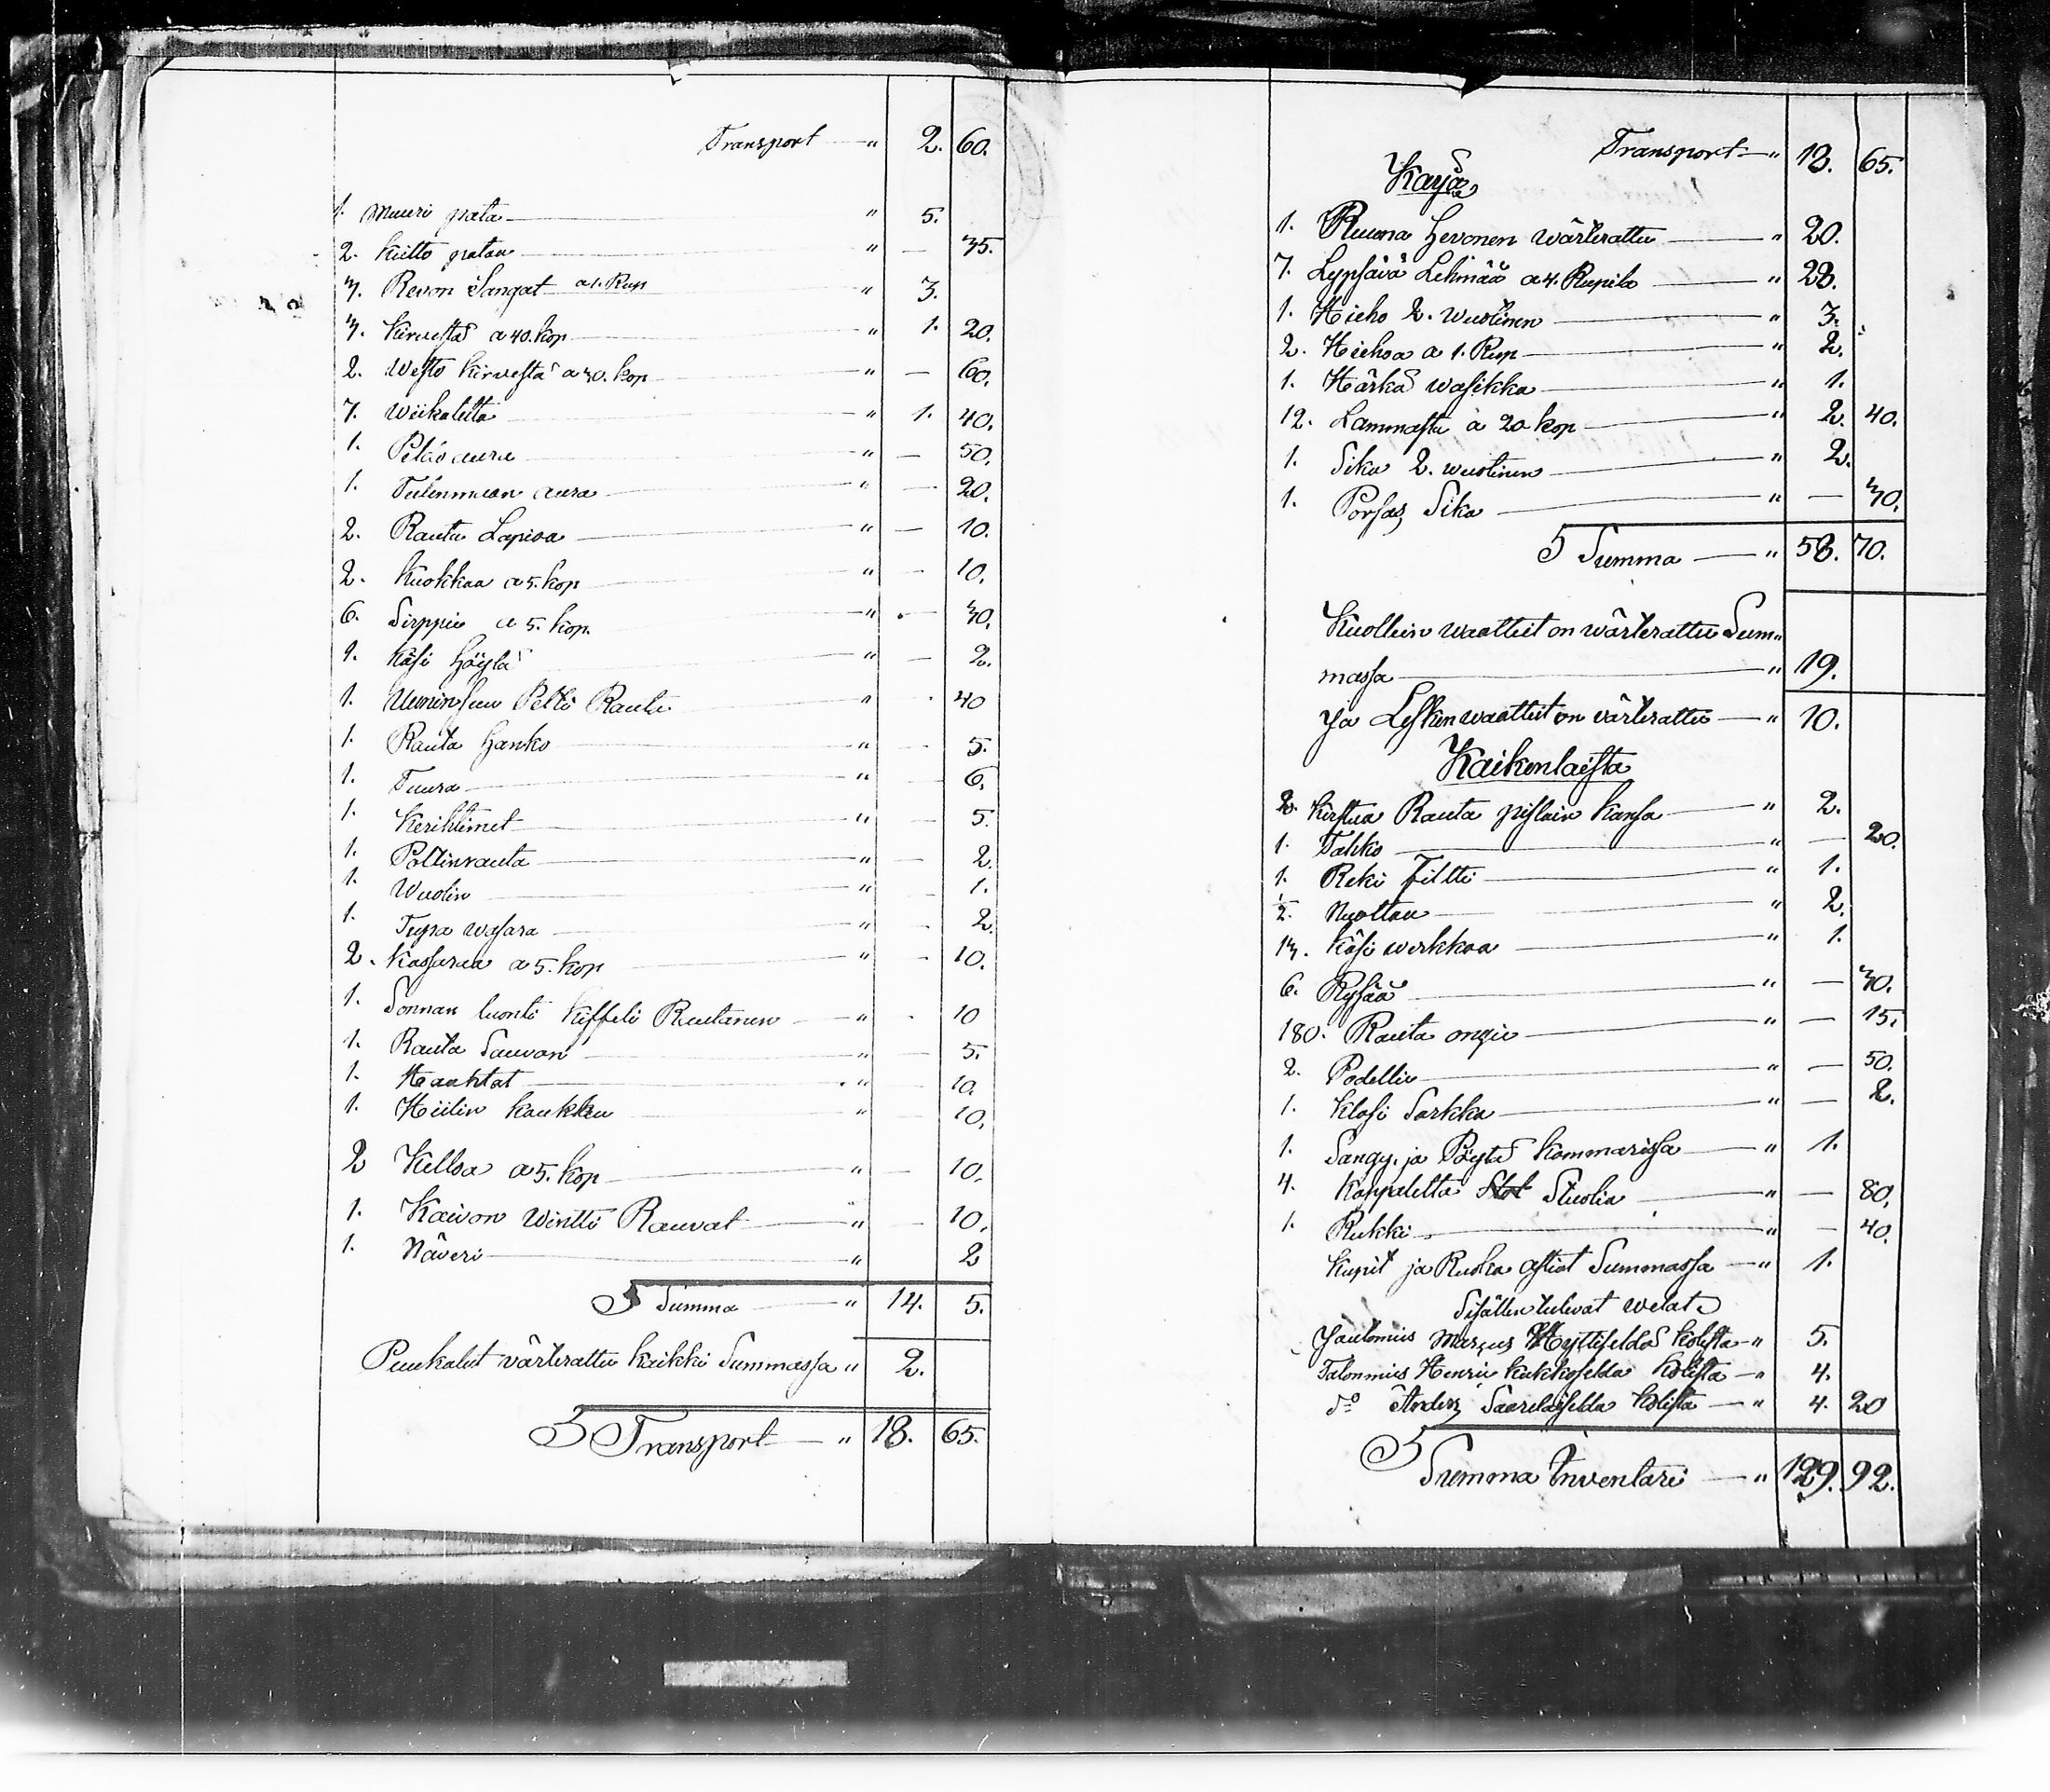 Transport — " 2. 60.
1. Muuri pata — " 5.
2. Kiitto pataa — " — 35.
3. Revon Sangat a 1. Rup — " 3.
3. Kirvestä a 40. kop — " 1. 20.
2. Westo kirvestä a 30. kop — " — 60.
7. Wiikatetta — " 1. 40.
1. Peldo aura — " — 50.
1. aura — " — 20.
2. Rauta Lapioa — " — 10.
2. Kuokkaa a 5. kop — " — 10.
6. Sirppiä a 5. kop. — " — 30.
1. Käsi Höylä — " — 2.
1. Uunin suu Pelti Rauta " 40
1. Rauta Hanko — " — 5.
1. Tuura — " — 6.
1. Kerihtimet — " — 5.
1. Poltinrauta — " — 2.
1. Wuolin — " — 1.
1. Tupa wasara — " 2.
2. Kassaraa a 5. kop — " — 10.
1. Sonnan luonti Kiffeli Rautanen — " 10
1. Rauta Sauvan — " — 5.
1. Haahlat — " 10.
1. Hiilin koukku — " — 10.
2 Kelloa a 5. kop — " — 10.
1. Kaivon Wintti Rauvat — " — 10.
1. Näveri — " 2
S Summa — " 14. 5.
Puukalut värterattu kaikki Summassa " 2.
S Transport — " 18. 65.
Transport — " 18. 65.
Karja
1. Ruuna Hevonen wärterattu — " 20.
7. Lypsävä Lehmää a 4. Rupila — " 28.
1. Hieho 2. wuotinen — " 3.
2. Hiehoa a 1. Rup — " 2.
1. Härkä wasikka — " 1.
12. Lammasta a 20 kop — " 2. 40.
1. Sika 2. wuotinen — " 2.
1. Porsas Sika — " — 30.
S Summa — " 58. 70.
Kuollein waatteet on wärterattu Sum"
massa — " 19.
Ja Lesken waatteet on värterattu — " 10.
Kaikenlaista
2. Kirstua Rauta pislain kansa — " 2.
1. Tahko — " — 20.
1. Reki Filtti — " 1.
1/2. Nuottaa — " 2.
13. Käsi werkkoa — " 1.
6. Rysää — " — 30.
180. Rauta ongia — " — 15.
2. Podellia — " — 50.
1. Klasi Sarkka — " — 2.
1. Sängy ja Pöytä Kammarissa — " 1.
4. Kappaletta Stol Stuolia — " — 80.
1. Rukki — " — 40.
Kupit ja Ruoka astiat Summassa — " 1.
Sisällen tulevat welat
Marcus Hyttiseldä Kolista — " 5.
Talonmies Henrik Kukkoselda Kolista — " 4.
do Anders Saarelaiselda Kolista — " 4. 20
S Summa Inventari — " 129. 92.